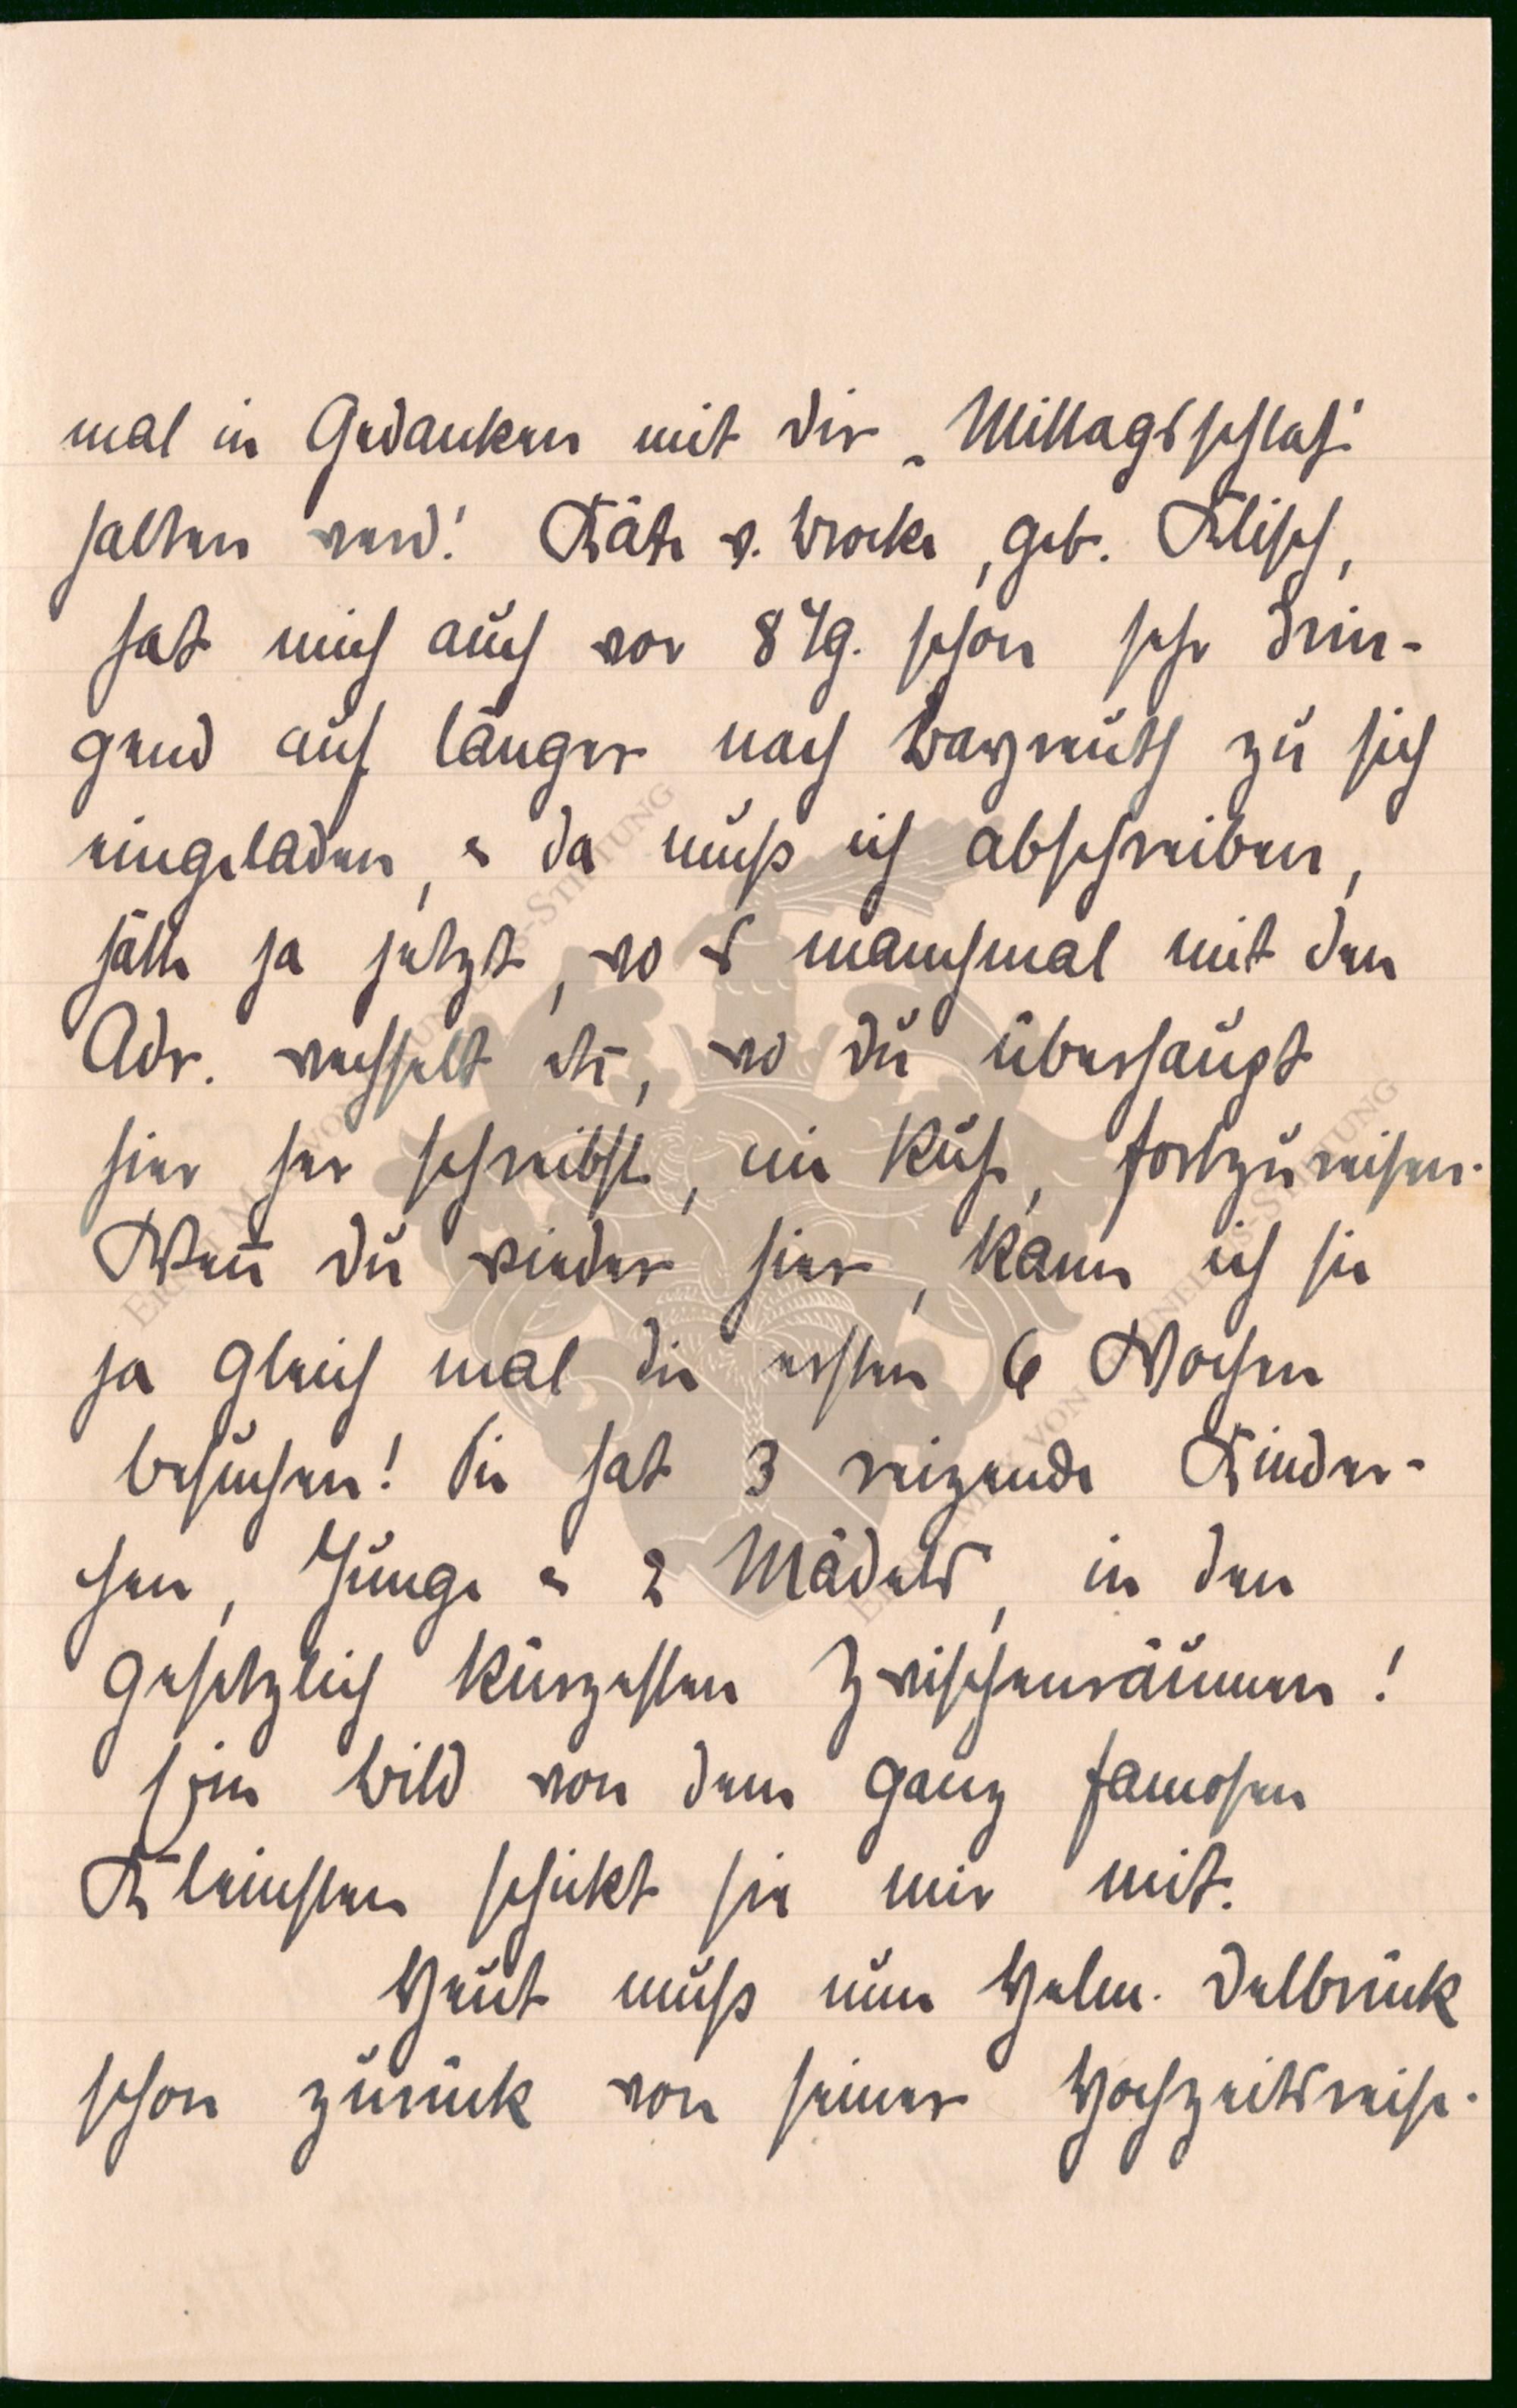 mal in Gedanken mit dir „Mittagsschlaf“
halten werd! Käte v. Brocke, geb. Klisch,
hat mich auch vor 8 Tg. schon sehr drin-
gend auf länger nach Bayreuth zu sich
eingeladen, & da muß ich abschreiben,
hätte ja jetzt, wo es manchmal mit den
Adr. wechselt etc, wo du überhaupt
hier her schreibst, nie Ruhe, fortzureisen.
Wen̄ du wieder hier, kann ich sie
ja gleich mal die ersten 6 Wochen
besuchen! Sie hat 3 reizende Kinder-
chen, Junge & 2 Mädels, in den
gesetzlich kürzesten Zwischenräumen!
Ein Bild von dem ganz famosen
Kleinsten schickt sie mir mit.
Heut muß nun Helm. Delbrück
schon zurück von seiner Hochzeitsreise.
ERNST M VON STIFTUNG